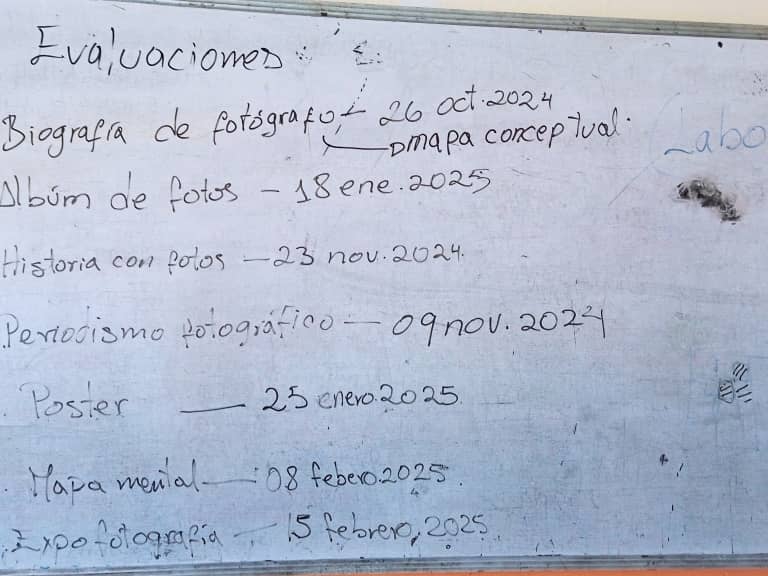 Evaluaciones:
Biografía de fotógrafo - 26 oct. 2024
mapa conceptual.
Labo
Albúm de fotos - 18 ene. 2025
Historia con fotos - 23 nov. 2024.
Periodismo fotográfico - 09 nov. 2024
. Poster - 25 enero. 2025
. Mapa mental - 08 febero. 2025.
. Expo fotografía - 15 febrero, 2025